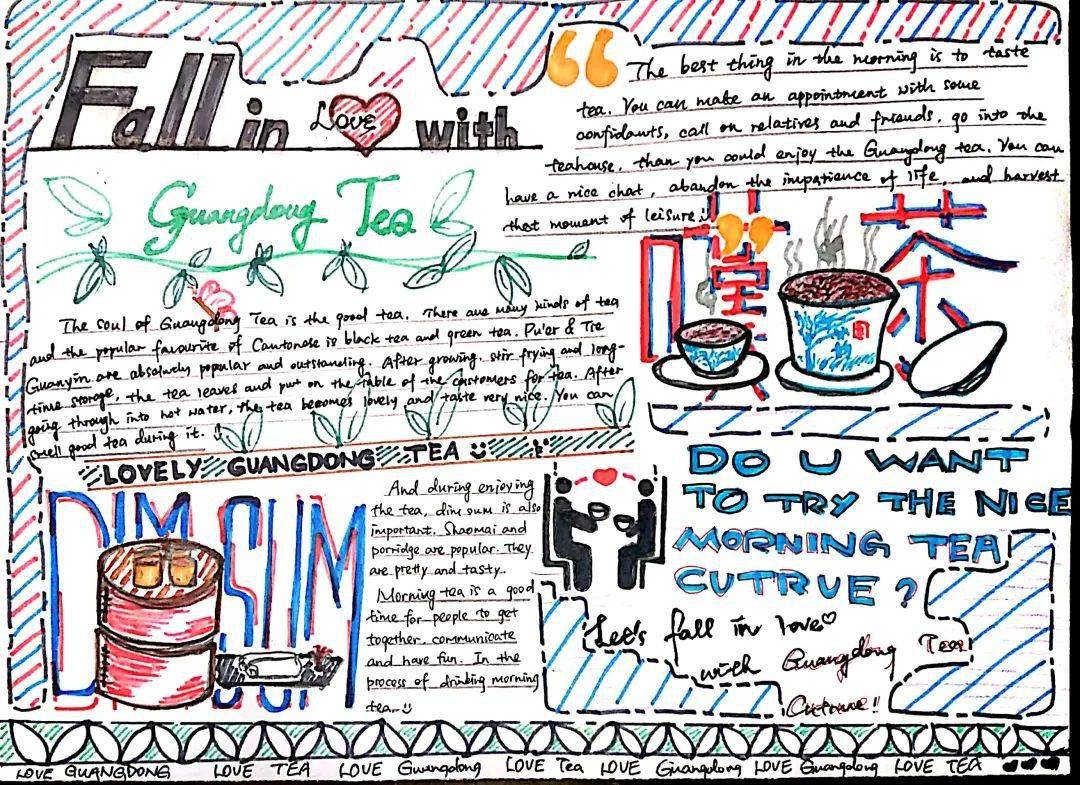 Fall in Love with
Guangdong Tea
The best thing in the morning is to taste
tea. You can make an appointment with some
confidants, call on relatives and friends, go into the
teahouse, than you could enjoy the Guangdong tea. You can
have a nice chat, abandon the impatience of life, and harvest
that moment of leisure
嘆茶
The soul of Guangdong Tea is the good tea. There are many kinds of tea
and the popular favourite of Cantonese is black tea and green tea. Pu'er & Tie
Guanyin are absoluely popular and outstanding. After growing, stir frying and long-
time storage, the tea leaves and put on the table of the customers for tea. After
going through into hot water, the tea becomes lovely and taste very nice. You can
smell good tea during it.
LOVELY GUANGDONG TEA
DIM SUM
And during enjoying
the tea, dim sum is also
important. Shaomai and
porridge are popular. They
are pretty and tasty.
Morning tea is a good
time for people to get
together, communicate
and have fun. In the
process of drinking morning
tea
DO U WANT
TO TRY THE NICE
MORNING TEA
CUTRUE ?
Let's fall in love
with Guangdong Tea
Cutrue!!
LOVE GUANGDONG LOVE TEA LOVE Guangdong LOVE Tea LOVE Guangdong LOVE Guangdong LOVE TEA